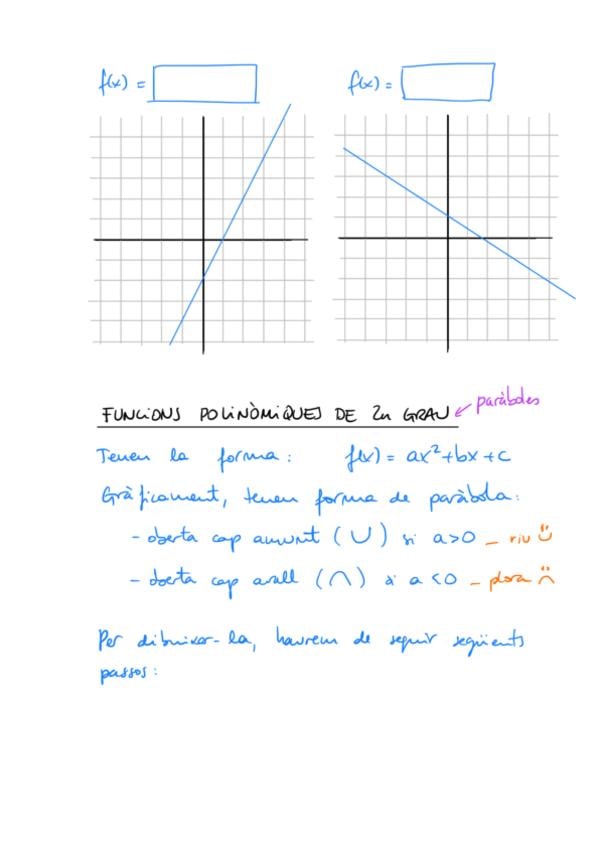 f(x) =
f(x) =
FUNCIONS POLINÒMIQUES DE 2n GRAU ← paràboles
Tenen la forma: f(x) = ax²+bx+c
Gràficament, tenen forma de paràbola:
- oberta cap amunt (∪) si a>0 - riu
- oberta cap avall (∩) si a<0 - plora
Per dibuixar-la, haurem de seguir següents
passos: